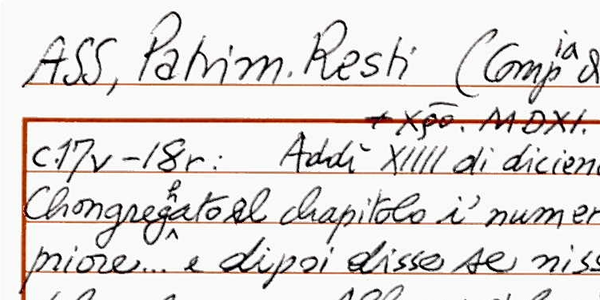 ASS, Patrim. Resti (Compia
+ Xpō. MDXI.
c.17v-18r: Addì XIIII di dicien
Chongreghato el chapitolo i' numer
priore... e dipoi disse se niss